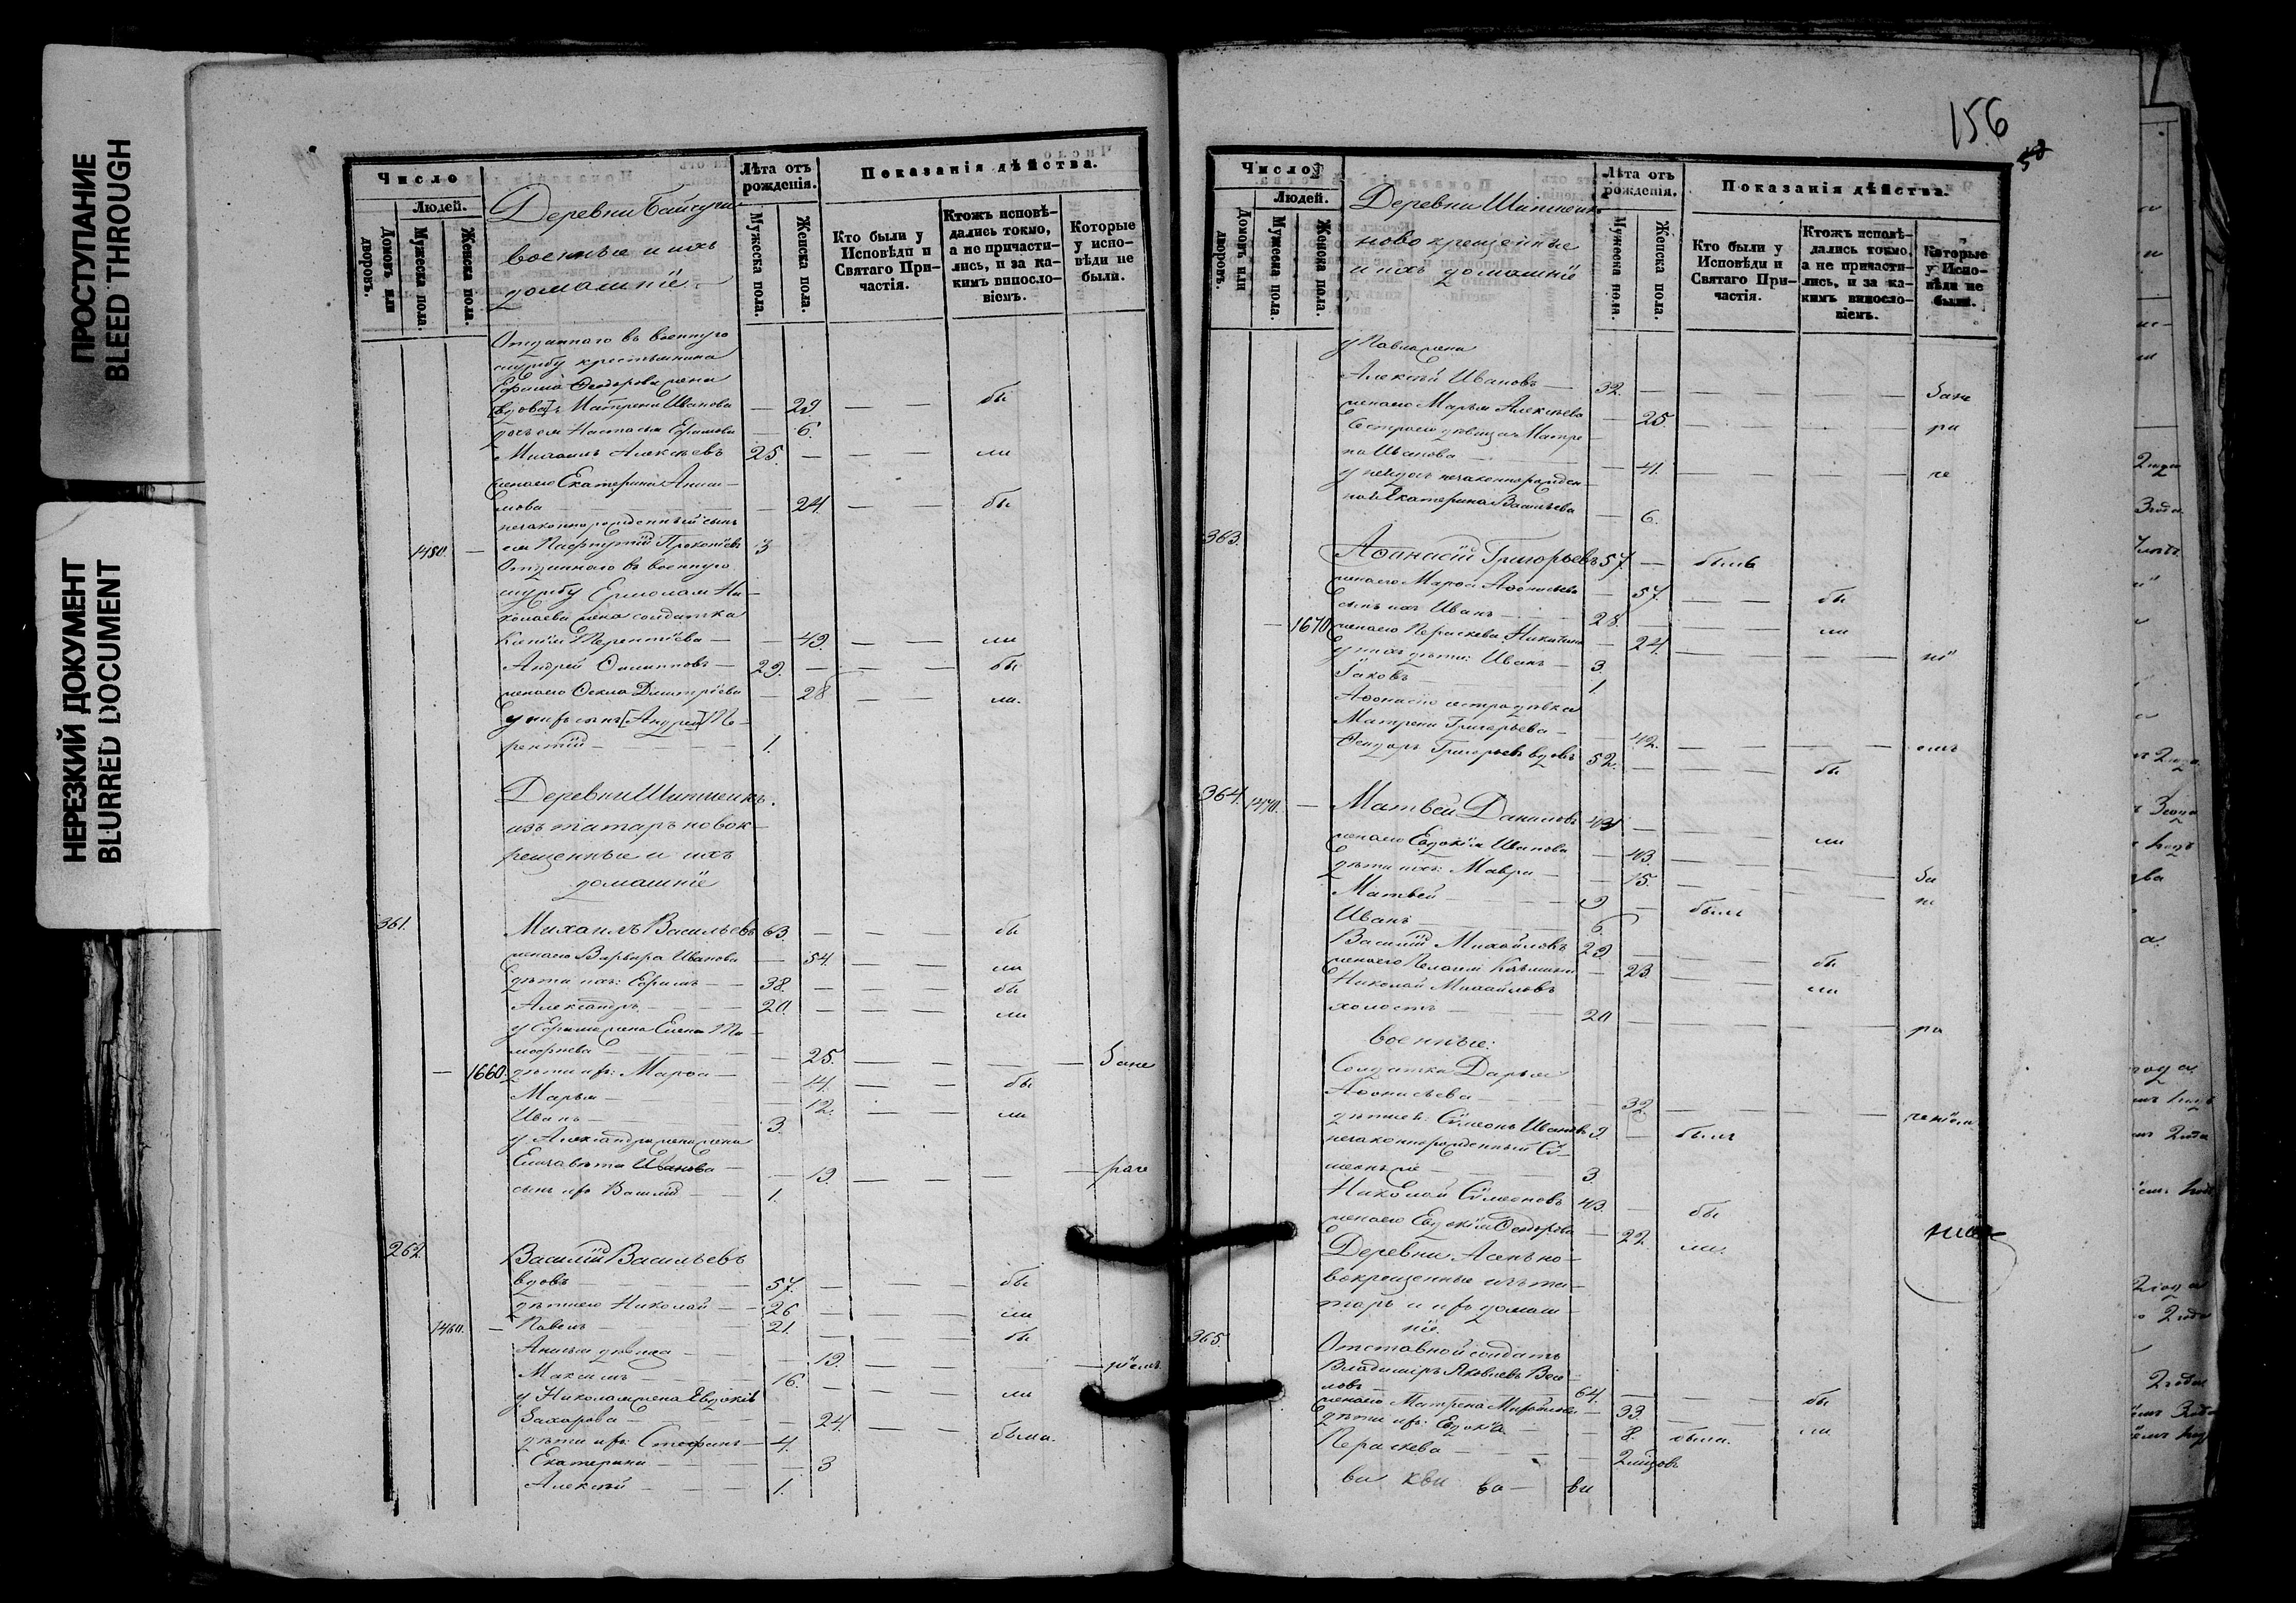 ПРОСТУПАНИЕ
BLEED THROUGH
НЕРЕЗКИЙ ДОКУМЕНТ
BLURRED DOCUMENT
Число
Людей.
Домовъ или дворовъ.
Мужеска пола.
Женска пола.
Деревни
военные и ихъ
домашніе
Лѣта отъ рожденія.
Мужеска пола.
Женска пола.
Показанія дѣйства.
Кто были у Исповѣди и Святаго Причастія.
Ктожъ исповѣдались токмо, а не причастились, и за какимъ винословіемъ.
Которые у исповѣди не были.
Отданнаго въ военную
службу крестьянина
Ефима Феодорова жена
вдова Матрена Иванова — 29. — — бы
дочь ея Настасья Ефимова — 6.
Михаилъ Алексѣевъ 25. — — — ли
жена его Екатерина Аниси-
мова — 24. — — бы
незаконнорожденный сынъ
1450. — ея Пафнутій Прокопіевъ 3
Отданнаго въ военную
службу Ермолая Ни-
колаева жена солдатка
Терентіева — — 49. — — ли
Андрей Филипповъ — 29. — — — бы
жена его Фекла Димитріева — 28 — — ли.
у нихъ сынъ [Андрей] Те-
рентій — — — 1.
Деревни
изъ татаръ новок-
рещенные и ихъ
домашніе
361. Михаилъ Васильевъ 63. — — — бы
жена его Варвара Иванова — 54. — — ли
дѣти ихъ: Ефимъ — — 38. — — — бы
Александръ — — 20. — — — ли
у Ефима жена Елена Ти-
мофеева — — — 25. — — — — за не
— 1660. дѣти ихъ: Марфа — — 14. — — бы
Марья — — — 12. — — ли
Иванъ — — 3.
у Александра жена
Елизавета Иванова — — 19. — — — — раче
сынъ ихъ Василій — — 1.
262. Василій Васильевъ
вдовъ — — — 57. — — — бы
дѣти его Николай — — 26 — — — ли
1460. — Павелъ — — — 21. — — — бы
Анисья дѣвица — — 19. — — — ніемъ.
Максимъ — — — 16. — — — ли
у Николая жена Евдокія
Захарова — — — 24. — — была.
дѣти ихъ: Стефанъ — 4.
Екатерина — — — 3
Алексѣй — — — 1.
156
Число
Людей.
Домовъ или дворовъ.
Мужеска пола.
Женска пола.
Деревни
новокрещенные
и ихъ домашніе
Лѣта отъ рожденія.
Мужеска пола.
Женска пола.
Показанія дѣйства.
Кто были у Исповѣди и Святаго Причастія.
Ктожъ исповѣдались токмо, а не причастились, и за какимъ винословіемъ.
Которые у Исповѣди не были.
у Павла жена
Алексѣй Ивановъ — 32. — — — — за не
жена его Марья Алексѣева — 25. — — — ра
Сестра его дѣвица Матре-
на Иванова — — 41. — — — че
у ней дочь незаконнорожден-
ная Екатерина Васильева — 6.
363. Афанасій Григорьевъ 57. — былъ
жена его Марфа Афонасьева — 57. — — бы
сынъ ихъ Иванъ — — 28. — — — ли
— 1670 жена его Параскева Никитина — 24. — — — ні
у нихъ дѣти: Иванъ — 3.
Іаковъ — — 1.
Афонасія сестра дѣвка
Матрена Григорьева — — 42. — — — емъ
Феодоръ Григорьевъ вдовъ 52. — — бы
364. 1470. — Матвей Даниловъ 43 — — ли
жена его Евдокія Иванова — 43. — — — за
дѣти ихъ: Мавра — — 15. — — — не
Матвей — — 9 — былъ
Иванъ — — 6.
Василій Михайловъ 29 — — бы
жена его Пелагія Козьмина — 23. — — ли
Николай Михайловъ
холостъ — — 20 — — — — ра
военные:
Солдатка Дарья
Афонасьева — — 32 — — — ченіем
дѣти ея: Симеонъ Ивановъ 9. — былъ
незаконнорожденный Си-
меонъ же — — 3.
Николай Симеоновъ 43. — бы
жена его Евдокія Феодорова — 22. ли.
Деревни но-
вокрещенные изъ та-
таръ и ихъ домаш-
ніе.
365. Отставной солдатъ
Владиміръ Яковлевъ
64. — — бы
жена его Матрена — 33. — — ли
дѣти ихъ: Евдокія — — 8. была.
Параскева — — — 2 мѣсяцовъ